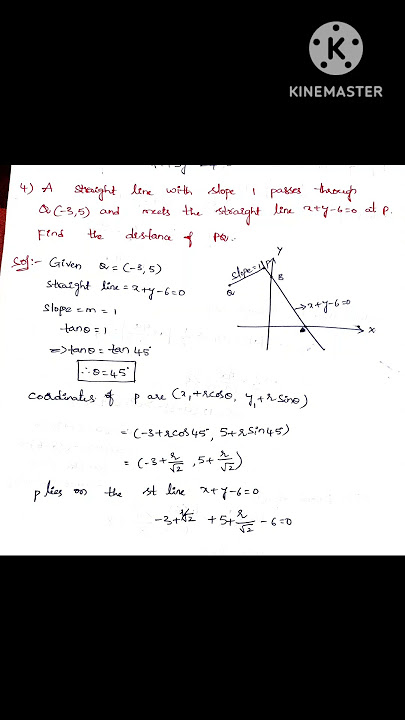 KINEMASTER
4) A straight line with slope 1 passes through
Q(-3,5) and meets the straight line x+y-6=0 at P.
Find the distance of PQ.
Sol:- Given Q=(-3,5)
straight line=x+y-6=0
slope=m=1
tanθ=1
⇒tanθ=tan45°
∴θ=45°
Y
slope=1
P
B
Q
x+y-6=0
A
X
coordinates of p are (x₁+rcosθ, y₁+rsinθ)
=(-3+rcos45, 5+rsin45)
=(-3+r/√2, 5+r/√2)
p lies on the st line x+y-6=0
-3+r/√2+5+r/√2-6=0